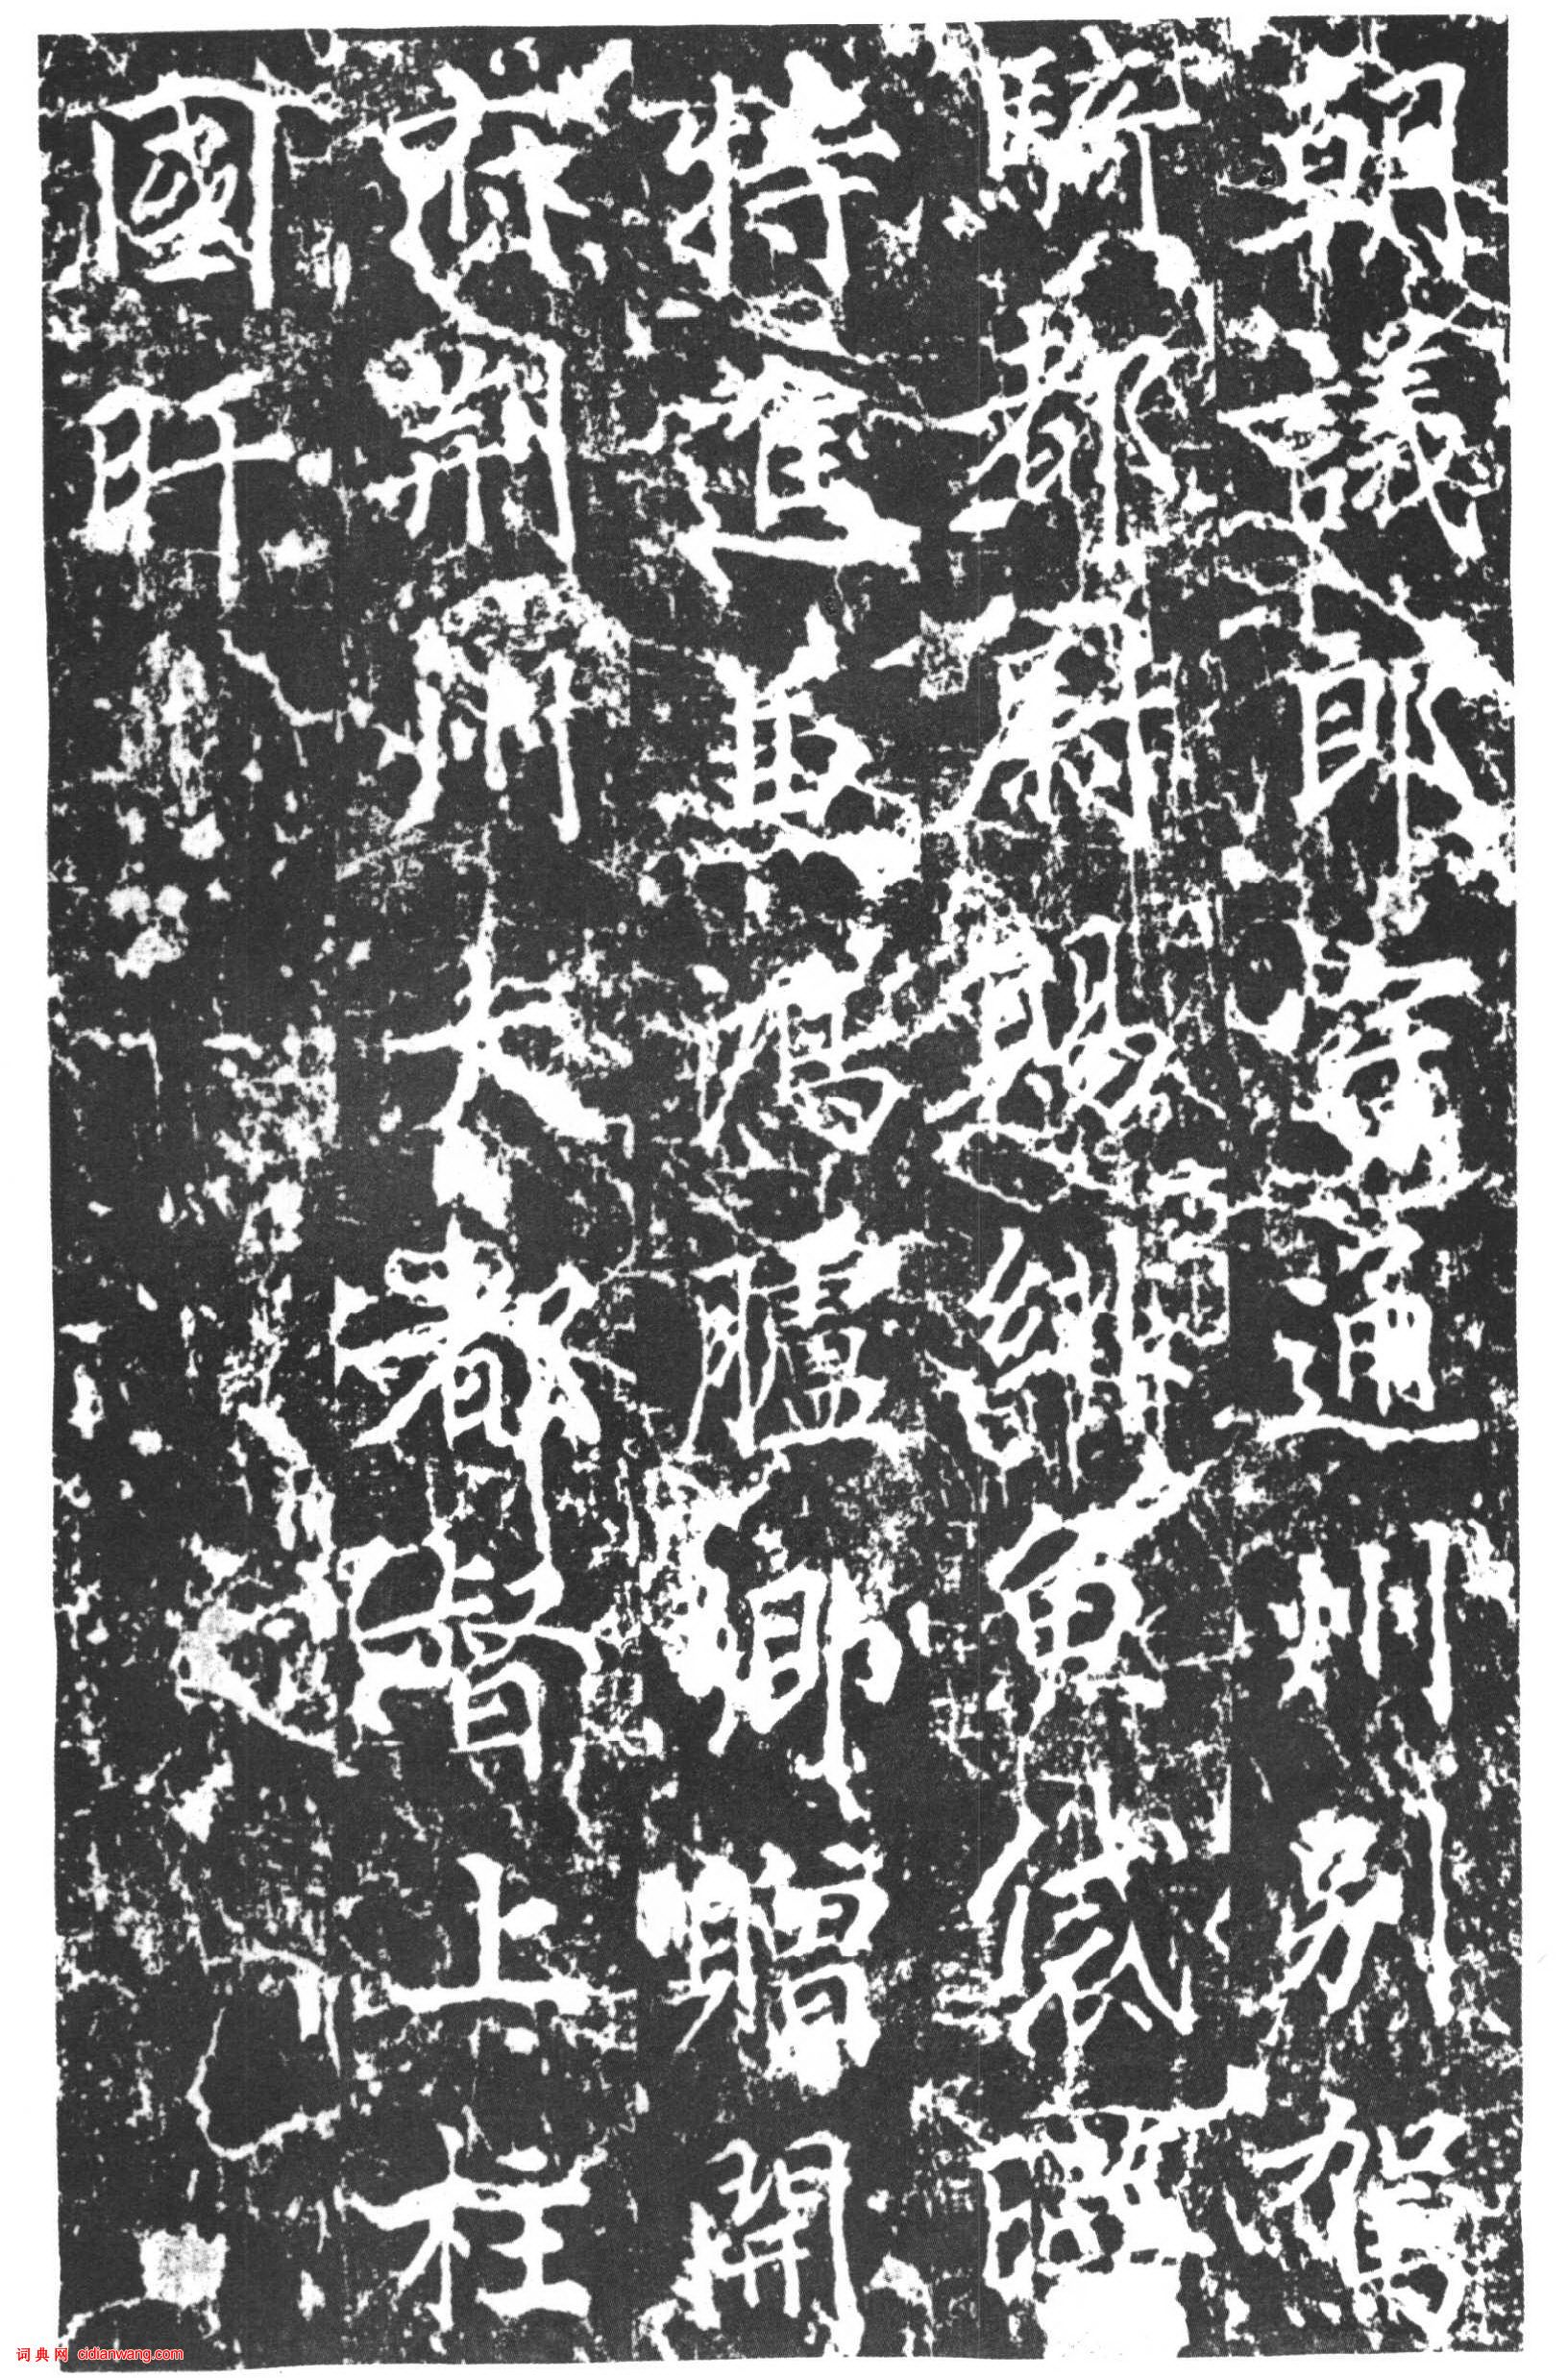 朝議郎通州別駕
騎都尉賜緋魚袋曜
特進兼鴻臚卿贈開
府荆州大都督上柱
國旰
词典网 cidianwang.com